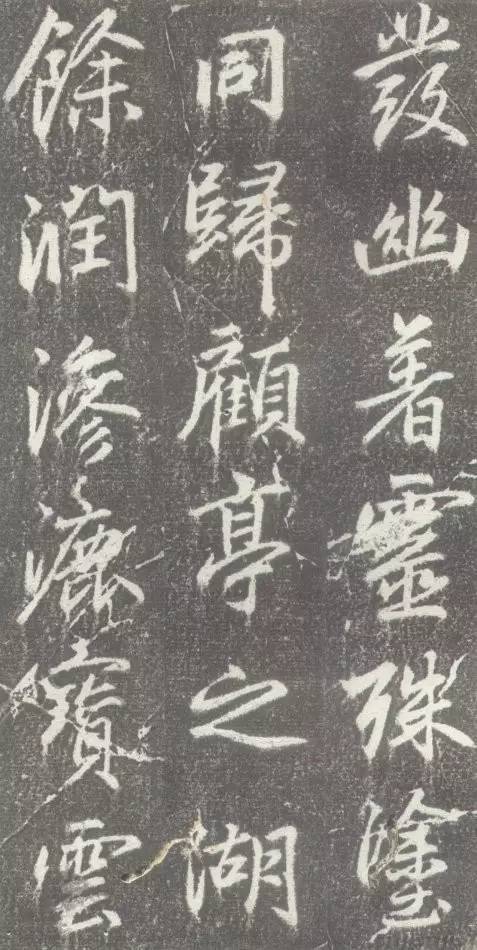 發幽着靈殊塗
同歸顧亭之湖
餘潤滲漉寶雲